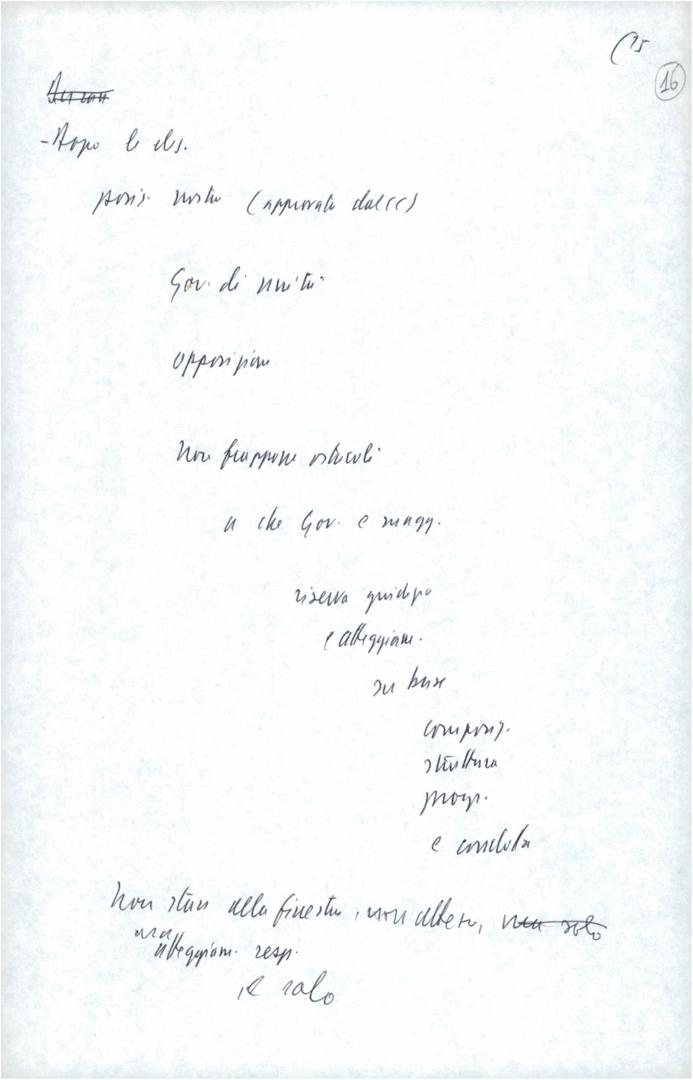 (15
16
- Dopo le elz.
posiz. nostra (approvata dal CC)
Gov. di unità
opposizione
Non frapporre ostacoli
a che Gov. e magg.
riserva giudizio
e atteggiam.
su base
composiz.
struttura
progr.
e condotta
Non stare alla finestra, non attesa, ma solo
ma
atteggiam. resp.